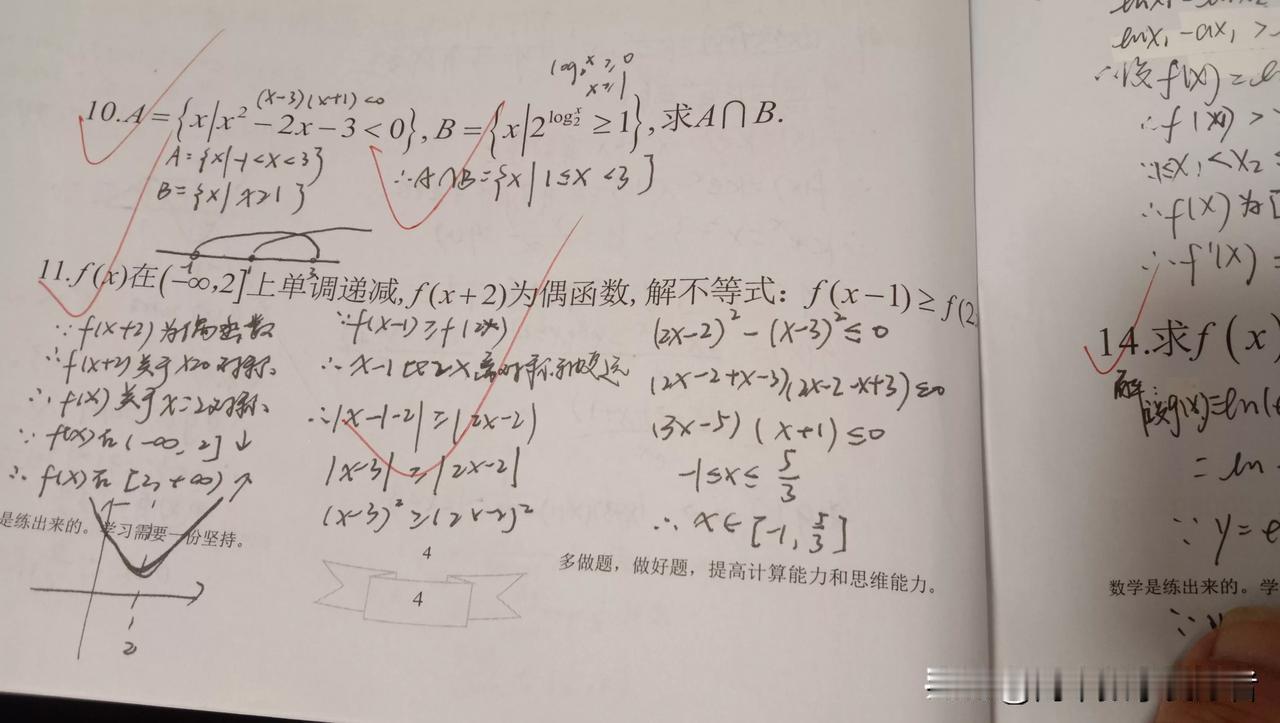 log₂x ≥ 0
x ≥ 1
(x-3)(x+1)<0
10.A={x|x²-2x-3<0}, B={x|2^{log₂^x}≥1},求A∩B.
A={x|-1<x<3}
B={x|x≥1}
∴A∩B={x|1≤x<3}
-1 1 3
11.f(x)在(-∞,2]上单调递减,f(x+2)为偶函数,解不等式: f(x-1)≥f(2
∵f(x+2)为偶函数
∴f(x+2)关于x=0对称.
∴f(x)关于x=2对称.
∵f(x)在(-∞,2]↓
∴f(x)在[2,+∞)↑
∵f(x-1)≥f(2x)
∴x-1比2x离对称轴更远
∴|x-1-2|≥|2x-2|
|x-3|≥|2x-2|
(x-3)²≥(2x-2)²
(2x-2)²-(x-3)²≤0
(2x-2+x-3)(2x-2-x+3)≤0
(3x-5)(x+1)≤0
-1≤x≤5/3
∴x∈[-1,5/3]
2
是练出来的。学习需要一份坚持。
4
4
多做题，做好题，提高计算能力和思维能力。
lnx₁-ax₁>
∴设f(x)=
∴f(x)>
∵1≤x₁<x₂≤
∴f(x)为
∴f'(x)=
14.求f(x)
解
设g(x)=ln(
=ln
∵y=
数学是练出来的。学